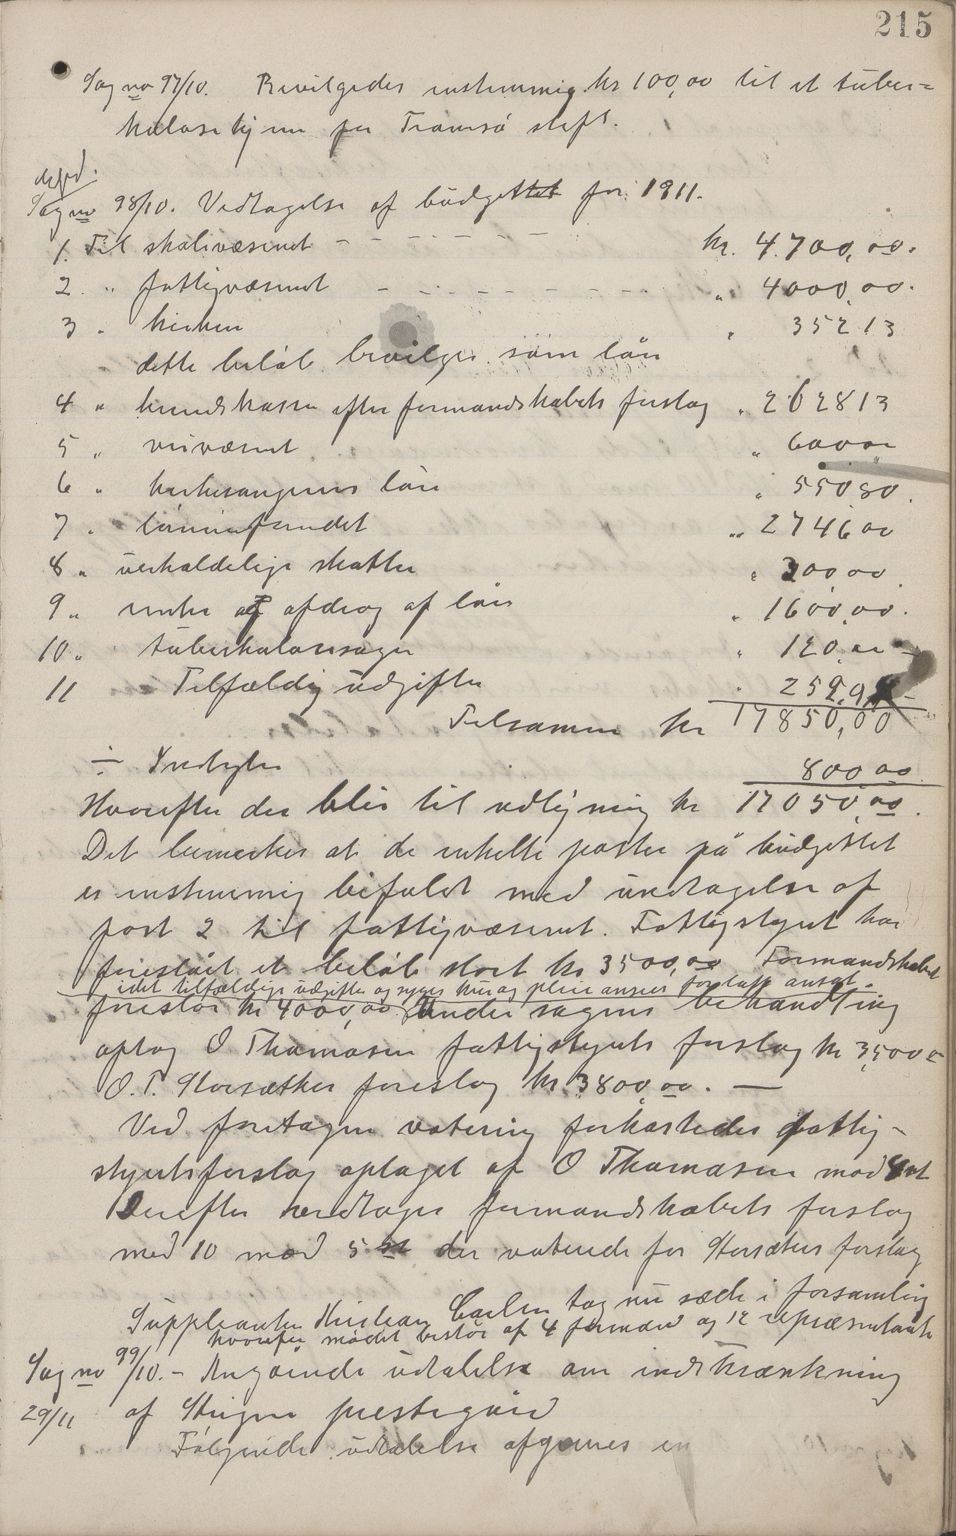 215
Sag no 97/10. Bevilgedes enstemmig kr 100,00 til et tuber=
kulosehjem for Tromsö stift.
Sag no 98/10. Vedtagelse af budgettet for 1911.
1. Til skolevæsenet - - - - - - kr. 4.700,00.
2 " fattigvæsenet - - - - - - - - " 4000,00.
3 " kirken " 352 13
dette belöb bevilges som lån
4 " herredskassen efter formandskabets forslag " 2628 13
5 " veivæsenet " 600 00
6 " kirkesangerens lön " 550 80.
7 " lönningsfondet " 2746 00
8 " uerholdelige skatter " 300,00.
9 " renter og afdrag af lån " 1600,00.
10 " tuberkulosesager " 120,00
11 Tilfældig udgifter " 252,94
Tilsammen kr 17850,00
÷ Indtgter 800 00
Hvorefter der blir til udligning kr 17050,00.
Det bemerkes at de enkelte poster på budgettet
er enstemmig bifaldt med undtagelse af
post 2 til fattigvæsenet. Fattigstyret har
foreslåt et belöb stort kr 3500,00 Formandskabet
idet tilfældige udgifter og syges kur og pleie ansees forslaft ansat.
foreslår kr 4000,00 Under sagens behandling
optog O Thomasen fattigstyrets forslag kr 3,500 00
O. T. Storsæther foreslog kr 3800,00. —
Ved foretagen votering forkastedes fattig-
styretsforslag optaget af O Thomasen mod 4 st
Derefter vedtoges formandskabets forslag
med 10 mod 5 st der voterede for Storsæters forslag
Suppleanten Kristian Carlsen tog nu sæde i forsamling
hvorefter mödet bestör af 4 formænd og 12 repræsentanter
Sag no 99/10. - Angående udtalelse om indskrænkning
29/11 af Steigen prestegård
Fölgende udtalelse afgaves en